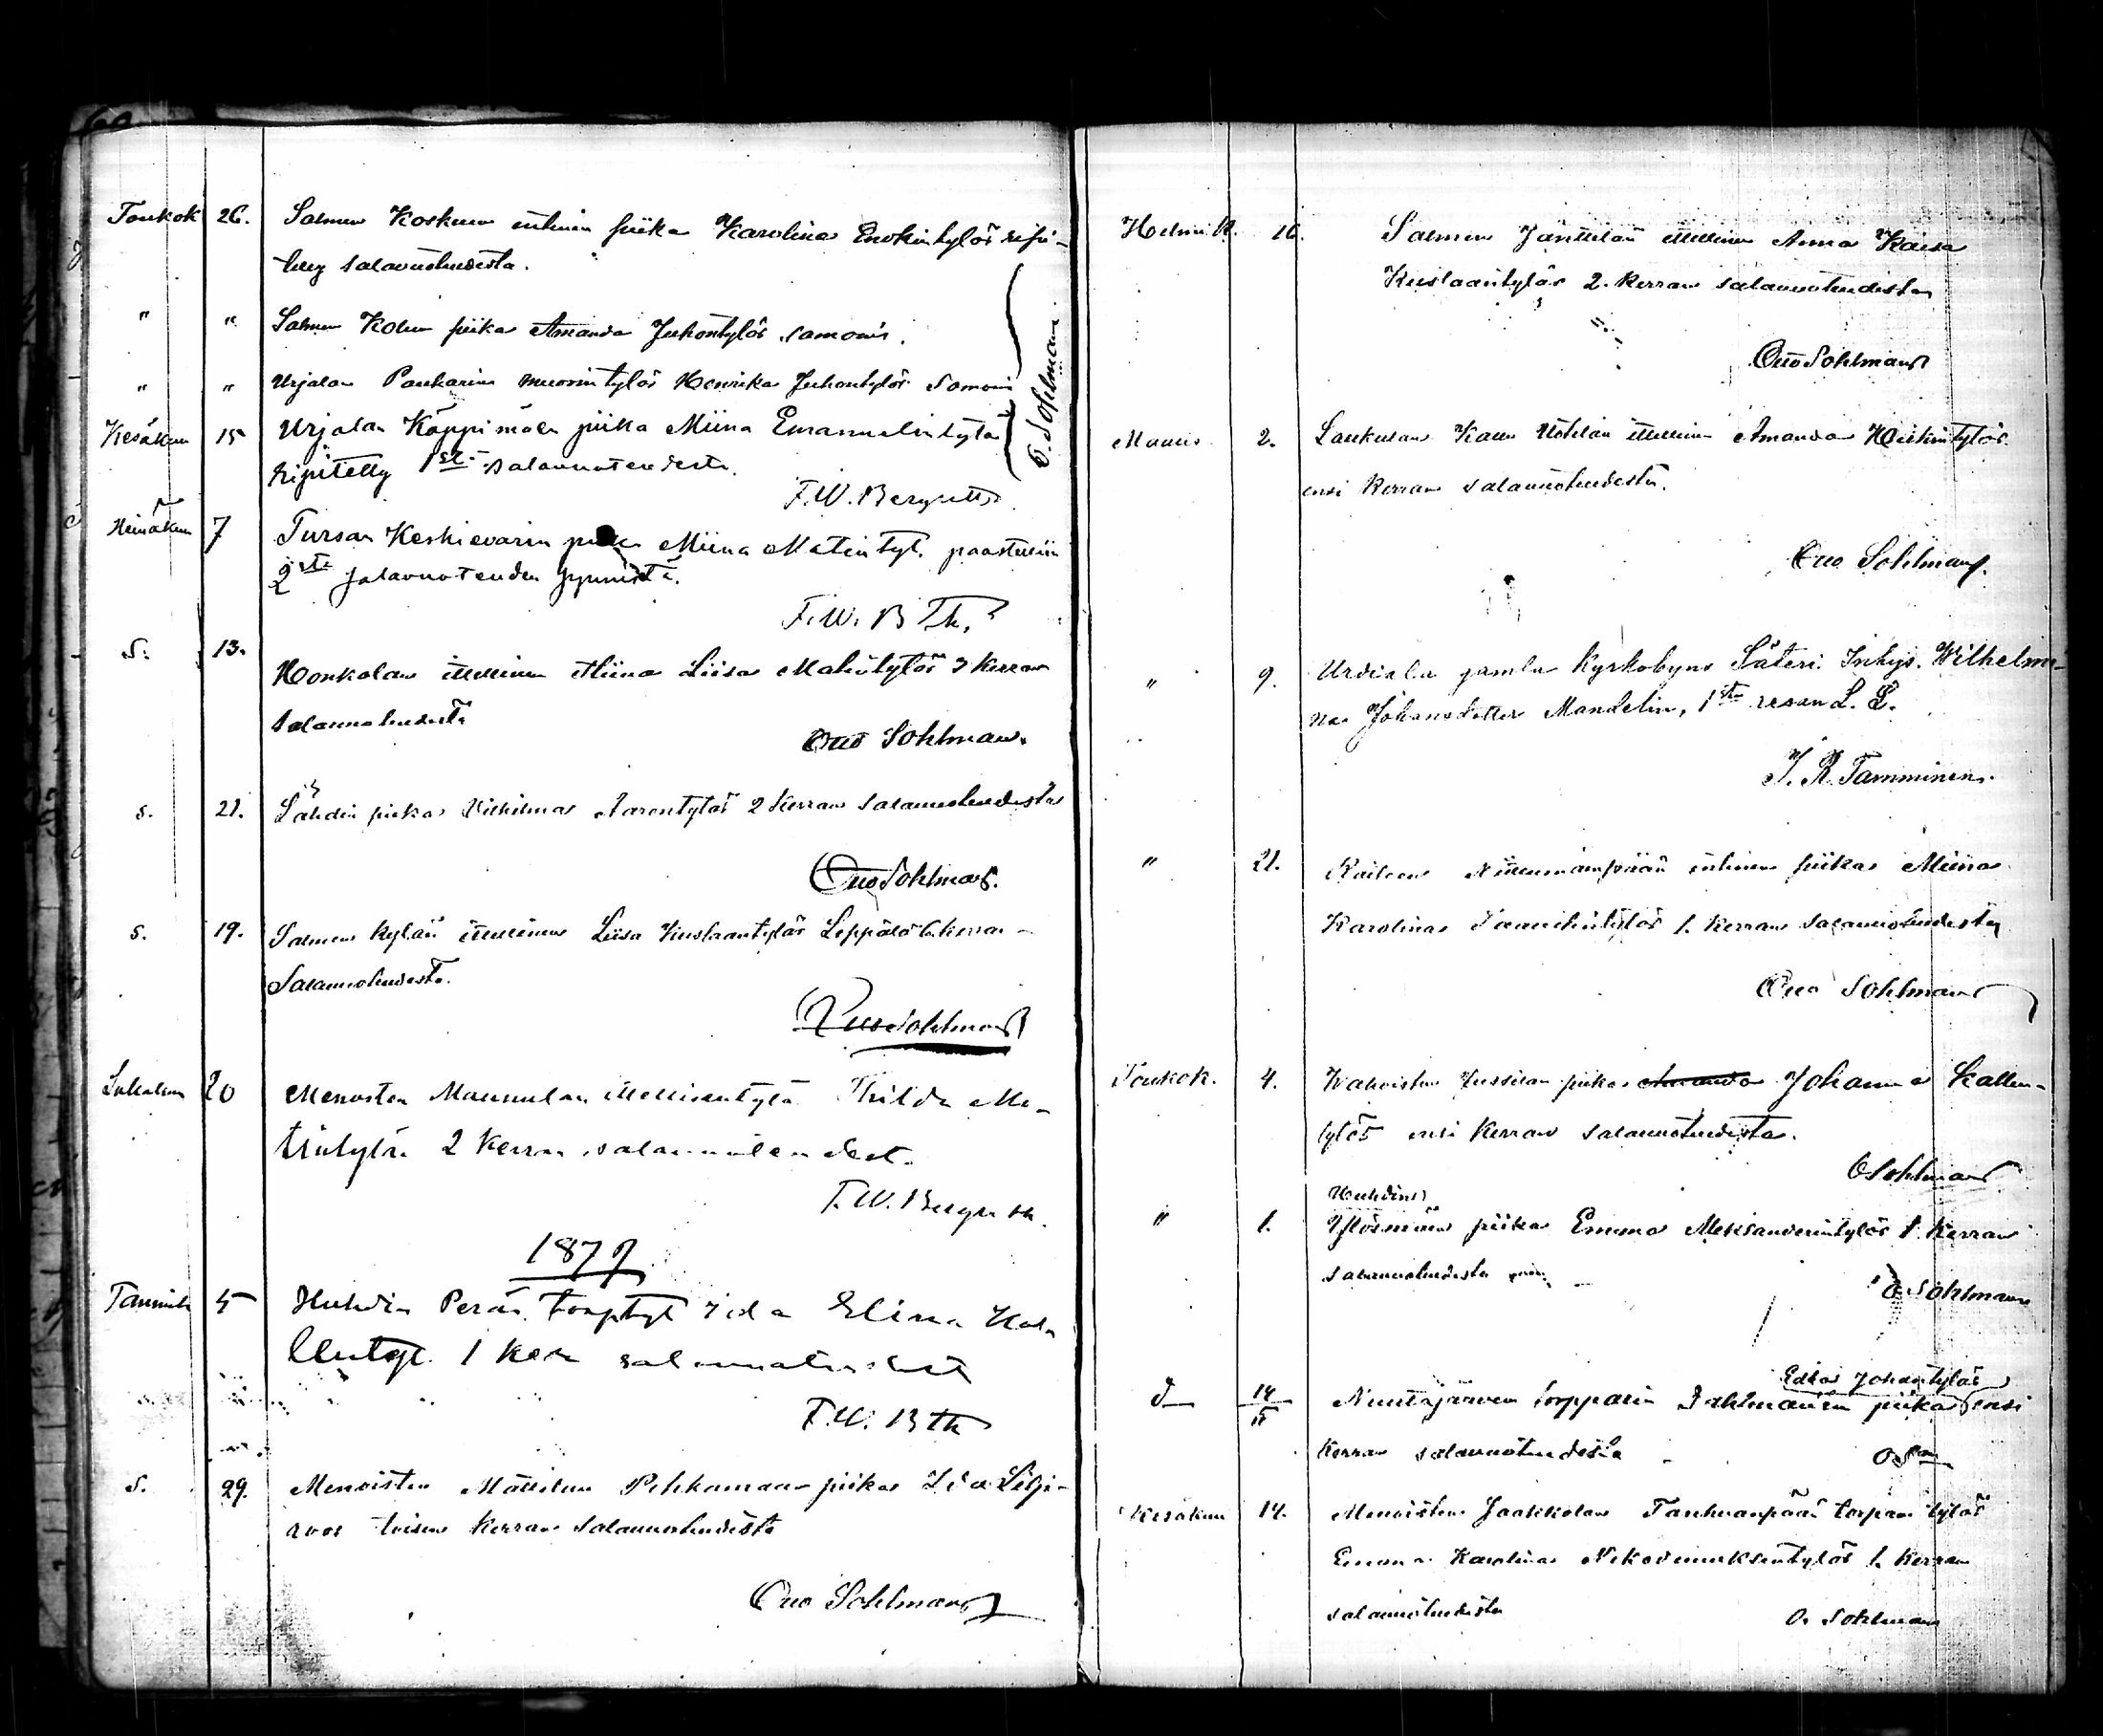 Toukok 26. Salmen Koskuen entinen piika Karolina Enokintytös ripi-
tetty salavuoteudesta.
" " Salmen Kolun piika Amanda Juhontytös samoin.
" " Urjalan Paukarin muorintytös Henrika Juhontytös Samoin
O. Sohlman
Kesäkuu 15 Urjalan Käppimäen piika Miina Emanuelintytä
ripitetty 1stä salavuoteudesta.
F.W. Bergroth
Heinäkuu 7 Tursan Keskievarin piika Miina Matintyt. paastettiin
2sta salavuoteuden synnistä.
F.W. B Th.
S. 13.
Honkolan itsellinen Miina Liisa Matintytös 3 Kerran
salavuoteudesta
Otto Sohlman.
s. 21. Lahden piika Vilhelmina Aarontytös 2 Kerran salavuoteudesta
Otto Sohlman.
s. 19. Salmen kylän itsellinen Liisa Kustaantytös Leppälä 6. kerran
Salavuoteudesta.
Otto Sohlman
Lokakuu 20 Menosten Maunulan itsellisentytä Thilda Ma-
tintytä 2 Kerran salavuoteudest.
F.W. Bergroth.
1879
Tammik 5 Huhdin Perän torptyt Ida Elina Kal
lentyt. 1 Ker salavuoteudest
F.W. Bth
S. 29. Menoisten Mattilan Pehkamaan piika Ida Lilje-
roos toisen Kerran Salavuoteudesta
Otto Sohlman
Helmik. 16. Salmen Jänttilän itsellinen Anna Kaisa
Kustaantytös 2. Kerran salavuoteudesta
Otto Sohlman
Maalis 2. Laukulan Kaun Uotilan itsellinen Amanda Heikintytös
ensi Kerran salavuoteudesta.
Otto Sohlman.
" 9. Urdiala gamla Kyrkobyns Säteri Inhys. Wilhelmi-
na Johansdotter Mandelin, 1sta resan L. S.
J. R. Tamminen.
" 21. entinen piika Miina
Karolina 1. Kerran salavuoteudesta
Otto Sohlman
Toukok. 4. Wahoisten Jussilan piika Amanda Johanna Kallen-
tytös ensi Kerran salavuoteudesta.
O Sohlman
Huhdin
" 1. Ylösmäen piika Emma Aleksanderintytös 1. Kerran
salavuoteudesta
O. Sohlman
Edla Johantytös
d 14/15 Nuutajärven torpparin Dahlmanin piika ensi
Kerran salavuoteudesta O. Sman
Kesäkuu 14. Menoisten Jaakkolan Tanhuanpään torpan tytös
Emma Karolina Nikodemuksentytös 1. Kerran
salavuoteudesta O. Sohlman